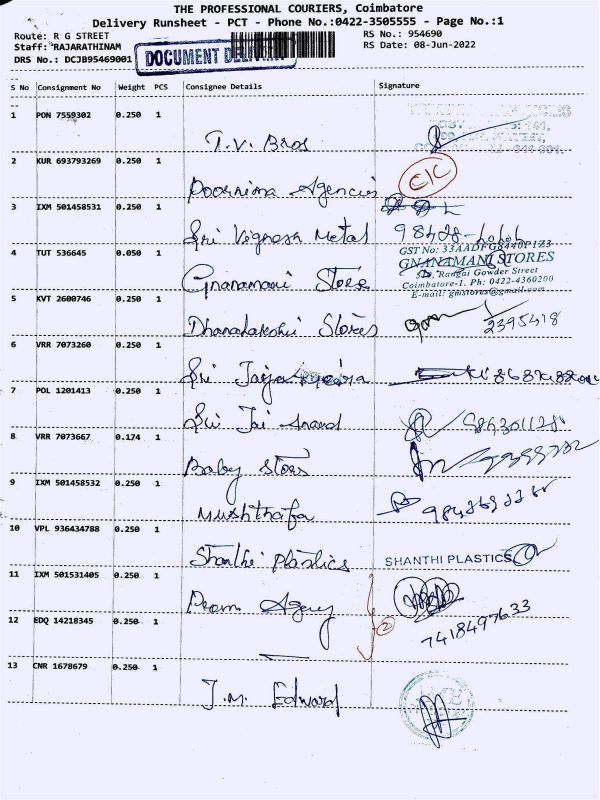 THE PROFESSIONAL COURIERS, Coimbatore
Delivery Runsheet - PCT - Phone No.:0422-3505555 - Page No.:1
Route: R G STREET
RS No.: 954690
Staff: RAJARATHINAM
RS Date: 08-Jun-2022
DRS No.: DCJB95469001
DOCUMENT DELIVERY
S No Consignment No Weight PCS Consignee Details Signature
1 PON 7559302 0.250 1
T.V. Bros
2 KUR 693793269 0.250 1
Poornima Agencies
3 IXM 501458531 0.250 1
Sri Vignesh Metal
4 TUT 536645 0.050 1
GST No: 33AADFG8440P1Z3
GNANAMANI STORES
Rangai Gowder Street
Coimbatore-1. Ph: 0422-4360200
E-mail: gmstores@gmail.com
Gnanamani Store
5 KVT 2600746 0.250 1
Dhanalakshmi Stores 2395418
6 VRR 7073260 0.250 1
Sri
7 POL 1201413 0.250 1
Sri Jai Anand
8 VRR 7073667 0.174 1
Baby Stores
9 IXM 501458532 0.250 1
Mushthafa
10 VPL 936434788 0.250 1
Shanthi Plastics SHANTHI PLASTICS
11 IXM 501531405 0.250 1
Prem Agency
2
12 EDQ 14218345 0.250 1
7418497633
13 CNR 1678679 0.250 1
J.M. Edward